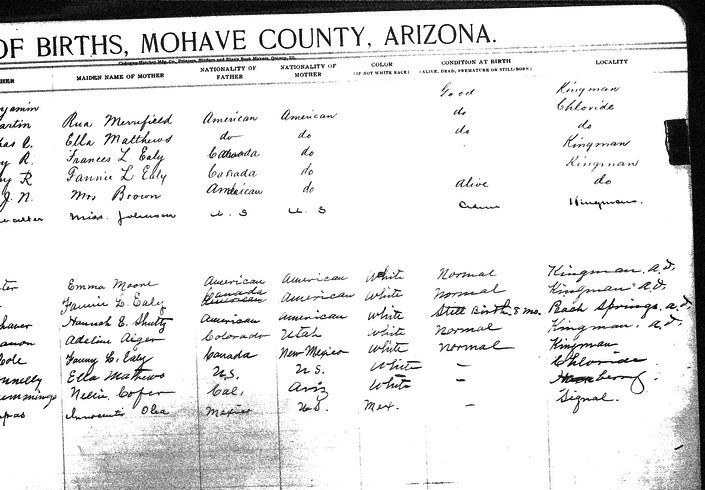 OF BIRTHS, MOHAVE COUNTY, ARIZONA.
MAIDEN NAME OF MOTHER NATIONALITY OF FATHER NATIONALITY OF MOTHER COLOR (IF NOT WHITE RACE) CONDITION AT BIRTH (ALIVE, DEAD, PREMATURE OR STILL-BORN) LOCALITY
Good Kingman
Rua Merrifield American American do Chloride
Ella Matthews do do do do
Frances L Ealy Canada do Kingman
Fannie L Ealy Canada do Kingman
J. N. Mrs Brown American do Alive do
Miss Johnson U S U S Kingman
Emma Moore American American White Normal Kingman, A.T.
Fannie L. Ealy Canada American White Normal Kingman, A.T.
Hannah E. Shutty American American White Still Birth 8 mo. Peach Springs, A.T.
Adeline Aiger Colorado Utah White Normal Kingman, A.T.
Cole Fanny L. Ealy Canada New Mexico White Normal Kingman
Ella Mathews U.S. U S White – Chloride
Nellie Cofer Cal. Ariz White –
Innocenti Olea Mexico U.S. Mex. – Signal.